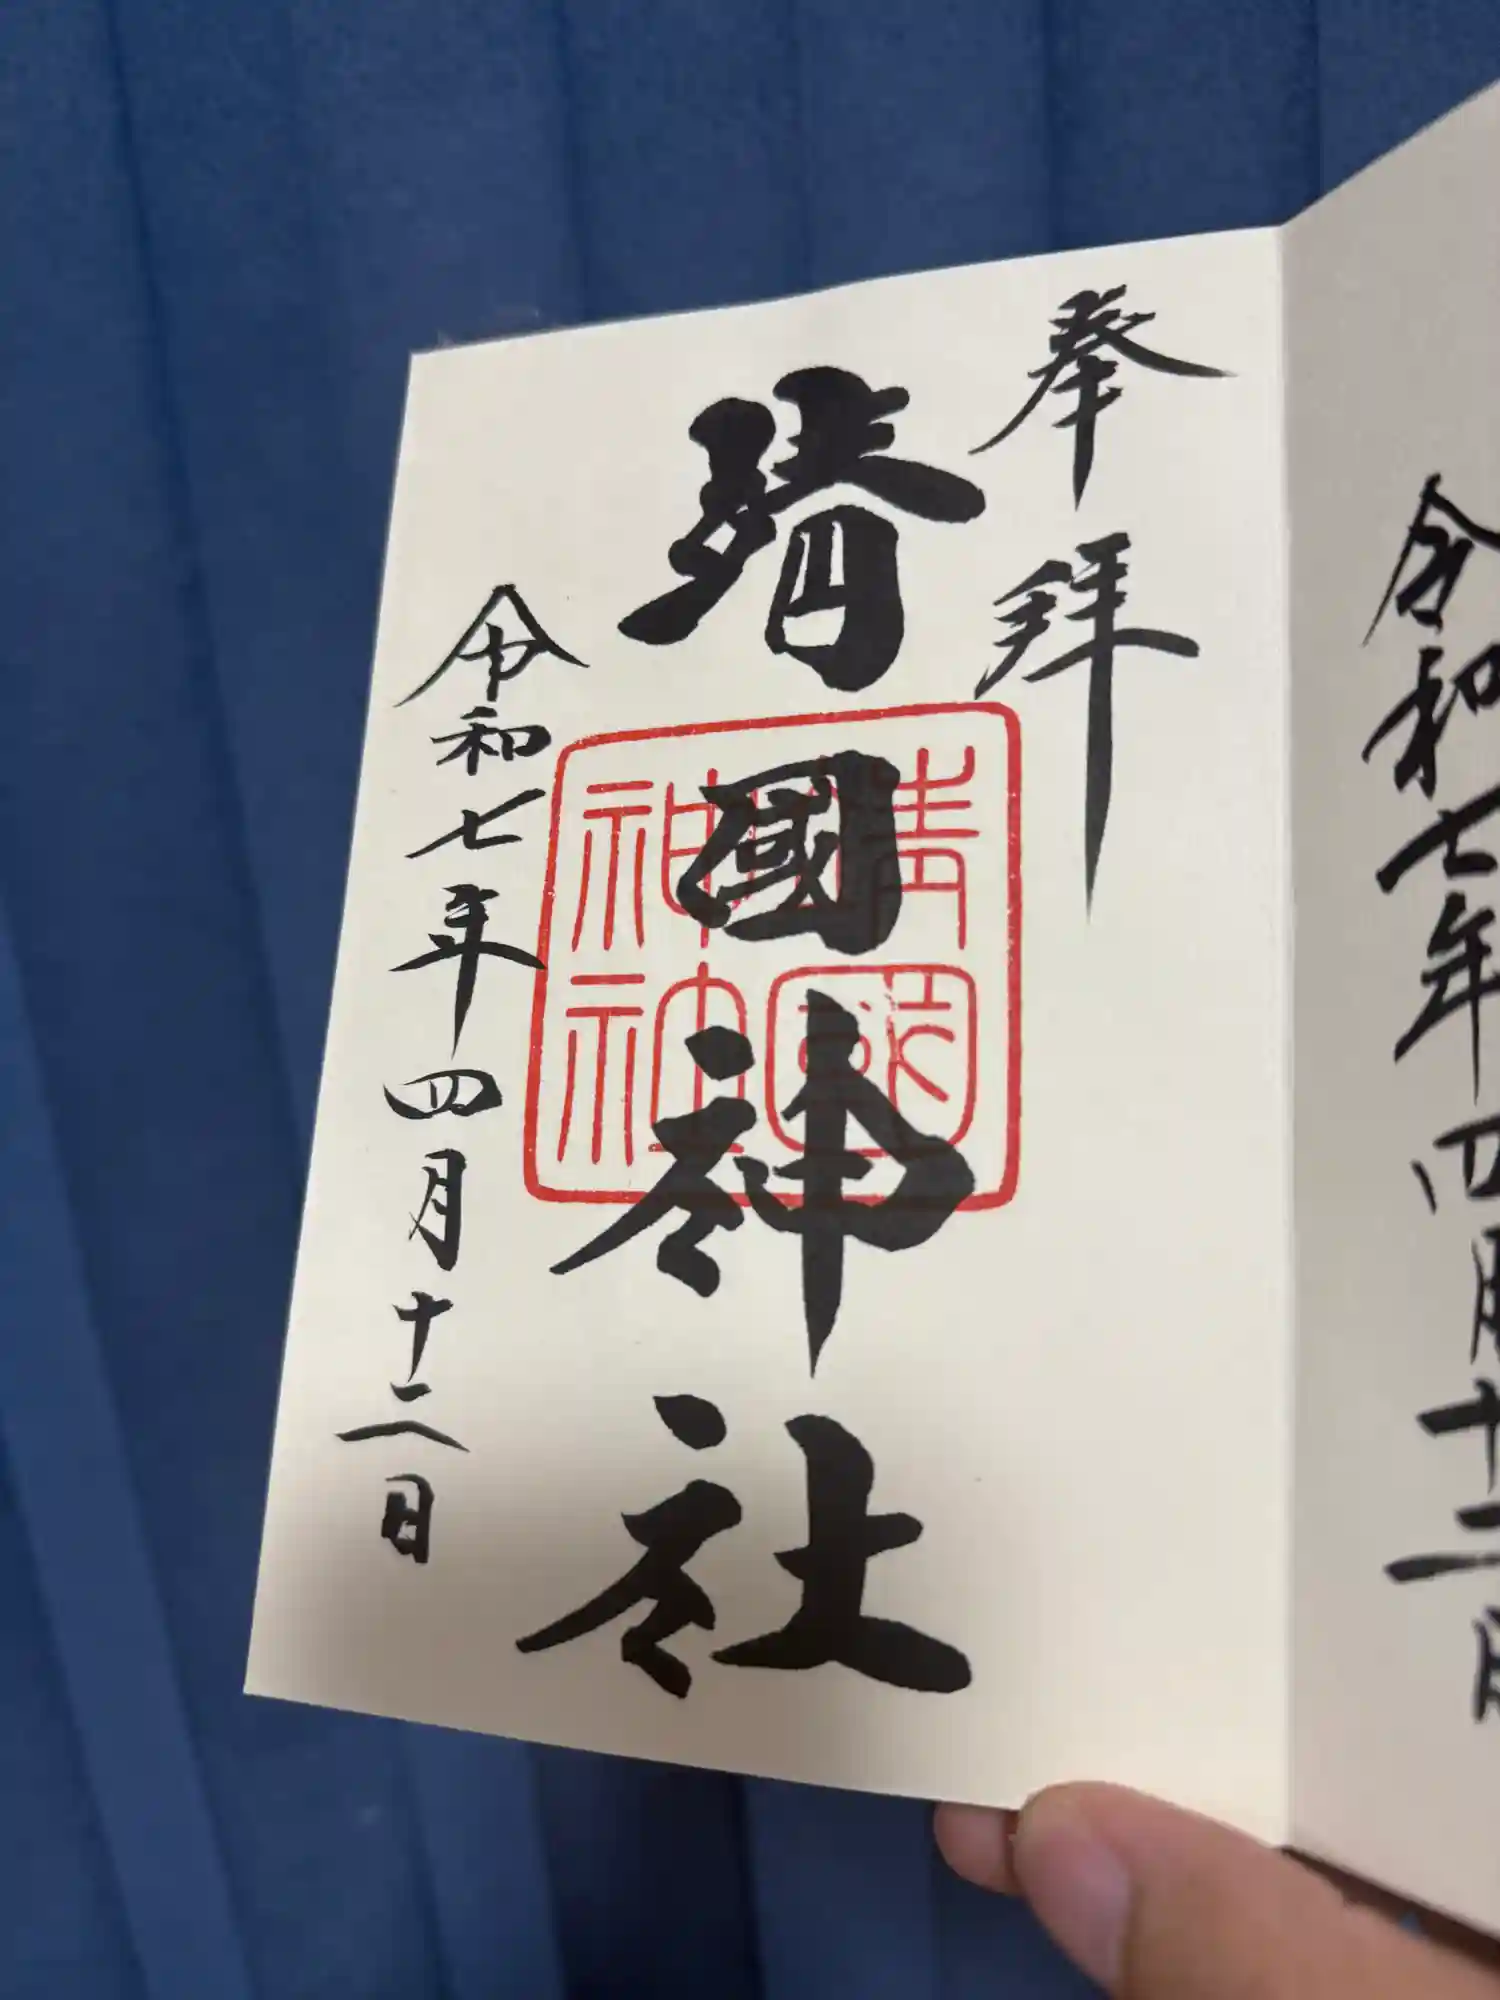 奉拝
靖國神社
靖國
神社
令和七年四月十二日
令和七年四月十二日